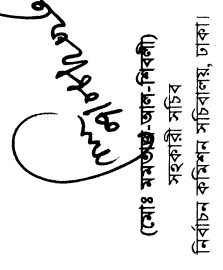 (মোঃ মমতাজ-আল-শিবলী)
সহকারী সচিব
নির্বাচন কমিশন সচিবালয়, ঢাকা।